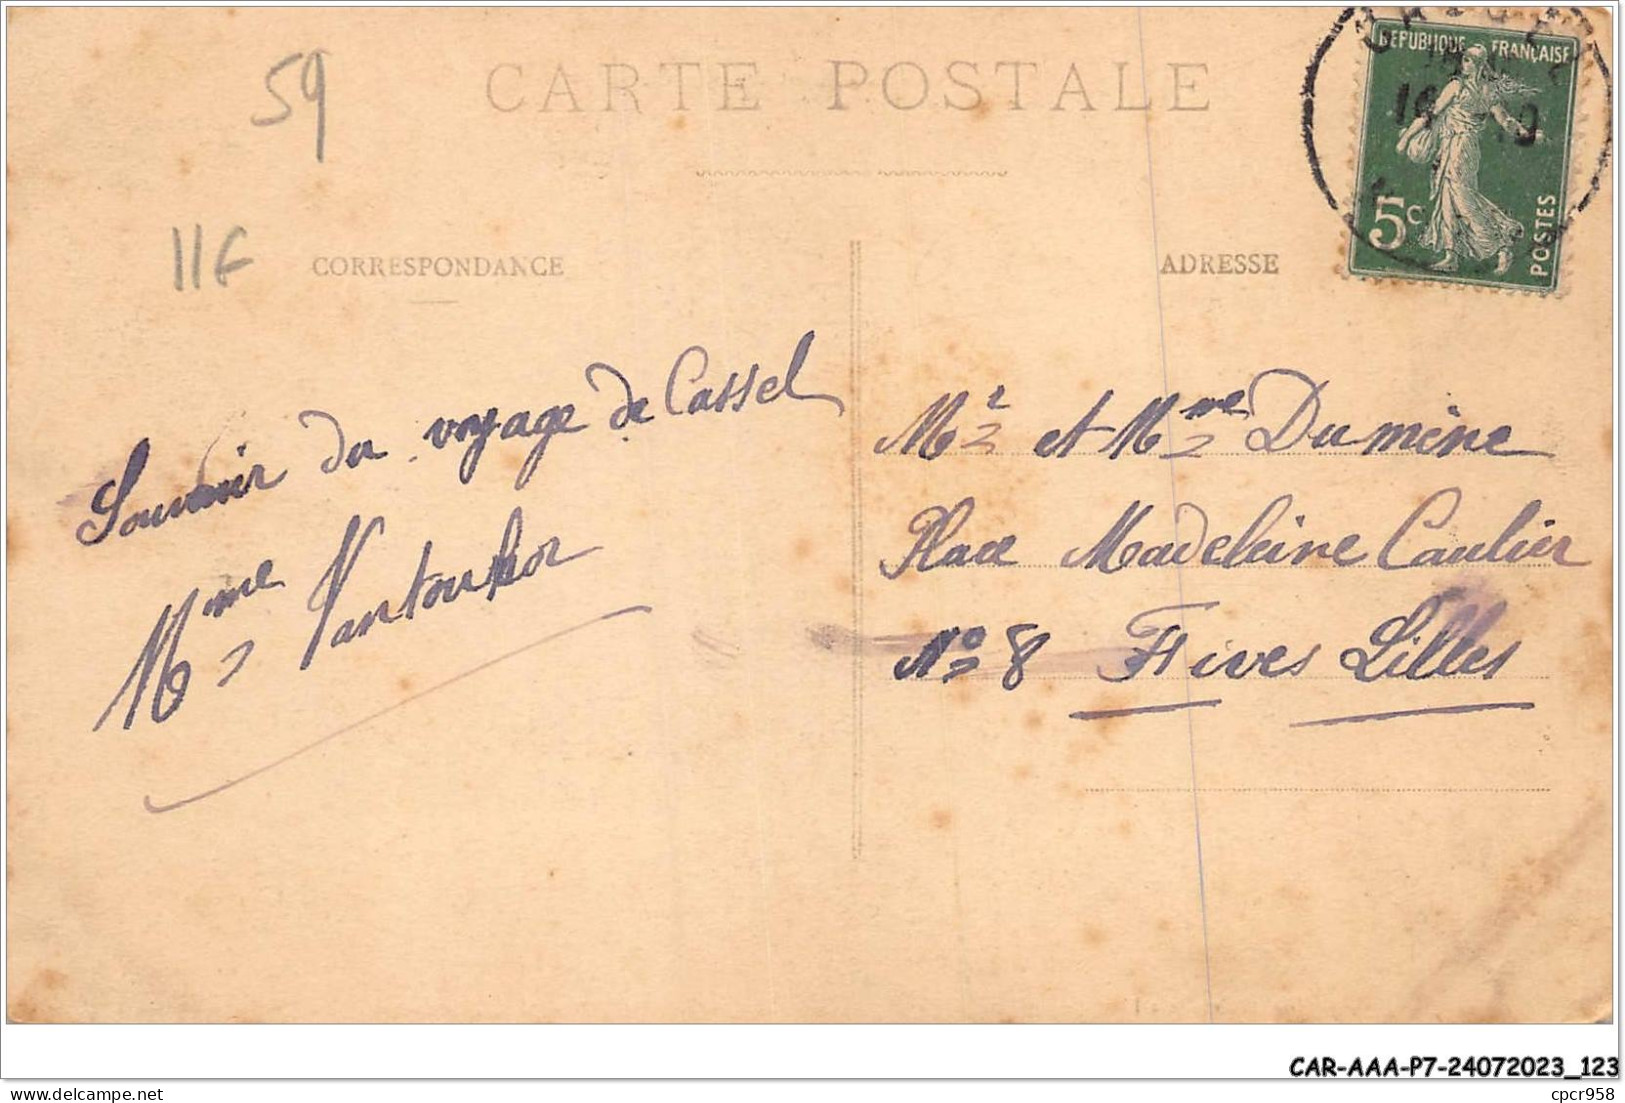 CARTE POSTALE
59
11F
CORRESPONDANCE
Souvenir du voyage de Cassel
Mme Vantourhor
ADRESSE
REPUBLIQUE FRANÇAISE
5c
POSTES
Mr et Mme Dumène
Place Madeleine Caulier
No 8 Fives Lilles
CAR-AAA-P7-24072023_123
cpcr958